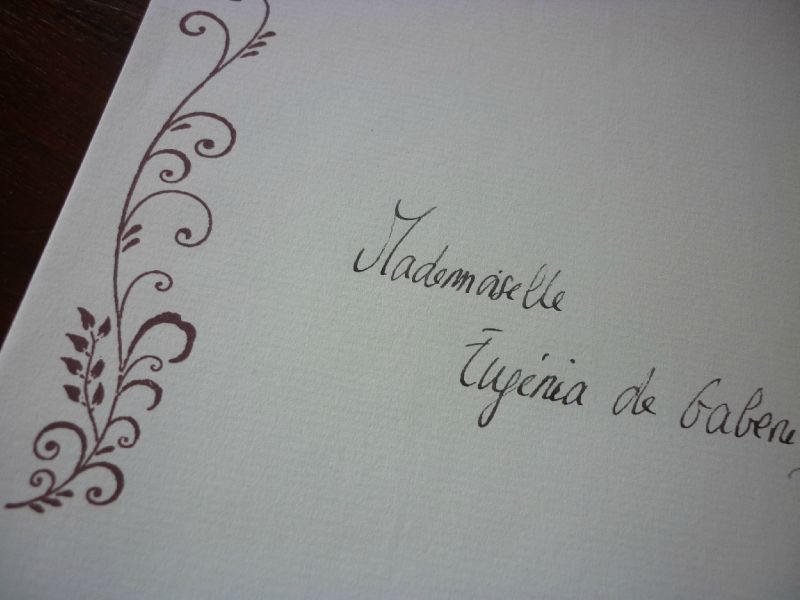 Mademoiselle
Eugénia de